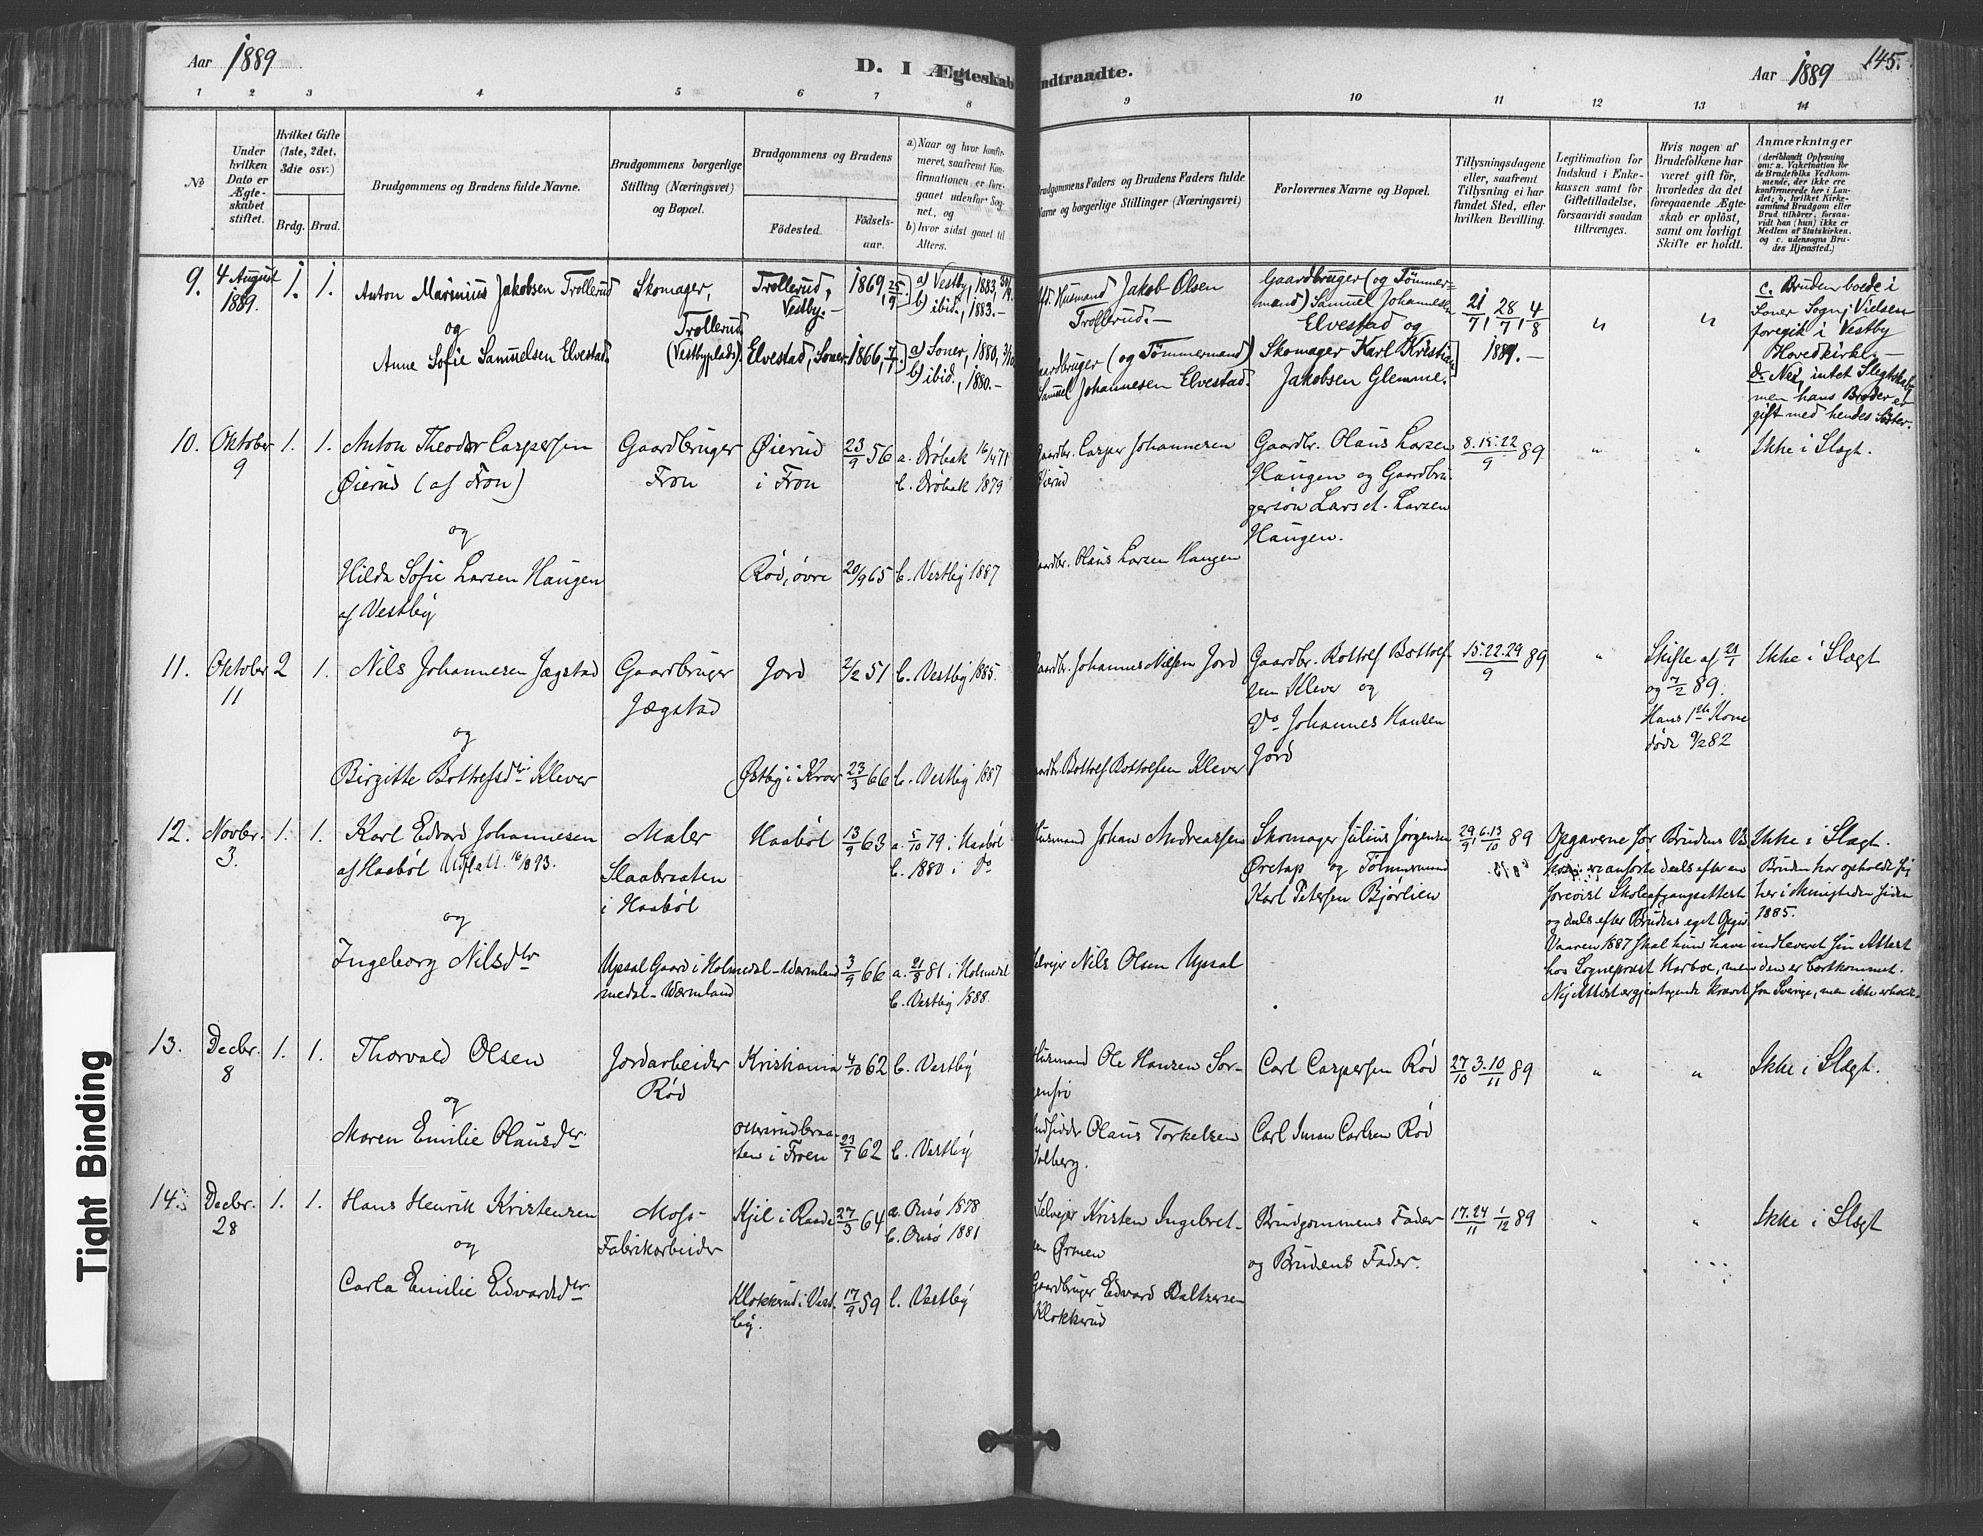 Aar 1889
D. I Ægteskab
ndtraadte.
Aar 1889
145.
1 2 3 4 5 6 7 8 9 10 11 12 13 14
№
Under
hvilken
Dato er
Ægte-
skabet
stiftet.
Hvilket Gifte
(1ste, 2det,
3die osv.)
Brdg. Brud.
Brudgommens og Brudens fulde Navne.
Brudgommens borgerlige
Stilling (Næringsvei)
og Bopæl.
Brudgommens og Brudens
Fødested.
Fødsels-
aar.
a) Naar og hvor konfir-
meret, saafremt Kon-
firmationen er fore-
gaaet udenfor Sog-
net, og
b) hvor sidst gaaet til
Alters.
Brudgommens Faders og Brudens Faders fulde
Navne og borgerlige Stillinger (Næringsvei)
Forlovernes Navne og Bopæl.
Tillysningsdagene
eller, saafremt
Tillysning ei har
fundet Sted, efter
hvilken Bevilling.
Legitimation for
Indskud i Enke-
kassen samt for
Giftetilladelse,
forsaavidt saadan
tiltrænges.
Hvis nogen af
Brudefolkene har
været gift før,
hvorledes da det
foregaaende Ægte-
skab er opløst,
samt om lovligt
Skifte er holdt.
Anmærkninger
(deriblandt Oplysning
om: a. Vakcination for
de Brudefolks Vedkom-
mende, der ikke ere
konfirmerede her i Lan-
det; b. hvilket Kirke-
samfund Brudgom eller
Brud tilhører, forsaa-
vidt han (hun) ikke er
Medlem af Statskirken,
og c. udensogns Bru-
des Hjemsted.)
9. 4 August
1889.
1. 1.
Anton Marinius Jakobsen Trollerud
og
Anne Sofie Samuelsen Elvestad.
Skomager,
Trollerud
(Vestbyplads).
Trollerud,
Vestby.-
Elvestad, Soner.
1869, 25/9.
1866, 7/7.
a) Vestby, 1883,
b) ibid., 1883.-
a) Soner, 1880,
b) ibid., 1880.-
Husmand Jakob Olsen
Trollerud.-
aardbruger (og Tømmermand)
Samuel Johannesen Elvestad.
Gaardbruger (og Tømmer-
mand) Samuel Johannesen
Elvestad og
Skomager Karl Kristian
Jakobsen Glemme.
21/7, 28/7, 4/8
1889.-
"
"
c. Bruden boede i
Soner Sogn; Vielsen
foregik i Vestby
Hovedkirke.-
d. Nei, intet Slegtskab,
men hans Broder er
gift med hendes Søster.
10. Oktober
9
1. 1.
Anton Theodor Caspersen
Øierud (af Fron)
og
Hilda Sofie Larsen Haugen
af Vestby
Gaardbruger
Fron
Øierud
i Fron
Rød, øvre
23/9 56
20/9 65
a. Drøbak 16/4 71
b. Drøbak 1879
b. Vestby 1887
aardbr. Casper Johannesen
Øierud
aardbr. Olaus Larsen Haugen
Gaardbr. Olaus Larsen
Haugen og Gaardbru-
gersøn Lars A. Larsen
Haugen.
8.15.22/9 89
"
"
Ikke i Slægt.
11. Oktober
11
2 1.
Nils Johannesen Jægstad
og
Birgitte Bottolfsdtr Klever
Gaardbruger
Jægstad
Jord
Østby i Kroer
2/2 51
23/3 66
b. Vestby 1885.
b. Vestby 1887
aardbr. Johannes Nilsen Jord
aardbr. Bottolf Bottolfsen Klever
Gaardbr. Bottolf Bottolf-
sen Klever og
Do Johannes Hansen
Jord
15.22.29/9 89
"
Skifte af 21/1
og 7/2 89.
Hans 1ste Kone
døde 9/2 82
Ikke i Slægt
12. Novbr.
3.
1. 1.
Karl Edvard Johannesen
af Haabøl Udfl. att. 16/8 93.
og
Ingeborg Nilsdtr
Maler
Slaabraaten
i Haabøl
Upsal Gaard i Holmedal - Wærmland
medal - Wærmland
Haabøl
13/9 63
3/9 66
a. 5/10 79 i Haabøl
b. 1880 i Do
a. 21/8 81 i Holmedal
b. Vestby 1888.
Husmand Johan Andreassen
Selveier Nils Olsen Upsal
Skomager Julius Jørgensen
Øretap og Tømmermand
Karl Petersen Bjørlien
29/9, 6.13/10 89
Opgaverne for Brudens Ved-
kom. er anførte deels efter en
forevist Skoleafgangsattest
og deels efter Brudens eget Opgiv.
Vaaren 1887 skal hun have indleveret sin Attest
hos Sogneprest Harboe, men den er bortkommet.
Ny Attest er gjentagende krævet fra Sverige, men ikke erholdt.
Ikke i Slægt.
Bruden har opholdt sig
her i Menigheden siden
1885.
13. Decbr.
8
1. 1.
Thorvald Olsen
og
Maren Emilie Olausdtr
Jordarbeider
Rød
Kristiania
Ottersrudbraa-
ten i Froen
4/10 62
23/7 62
b. Vestby
b. Vestby
Husmand Ole Hansen Sor-
genfri
Indsidder Olaus Torkelsen
Solberg.
Carl Caspersen Rød
Carl Iman Carlsen Rød
27/10 3.10/11 89
"
"
Ikke i Slægt.
14. Decbr.
28
1. 1.
Hans Henrik Kristensen
og
Carla Emilie Edvardsdtr
Moss-
Fabrikarbeider
Kjil i Raade
Klokkerud i Vest-
by.
27/3 64
17/9 59
a. Onsø 1878
b. Onsø 1881
b. Vestby
Selveier Kristen Ingebret-
sen Ørmen
Gaardbruger Edvard Baltzersen
Klokkerud
Brudgommens Fader
og Brudens Fader.
17.24/11 1/12 89
"
"
Ikke i Slægt
Tight Binding